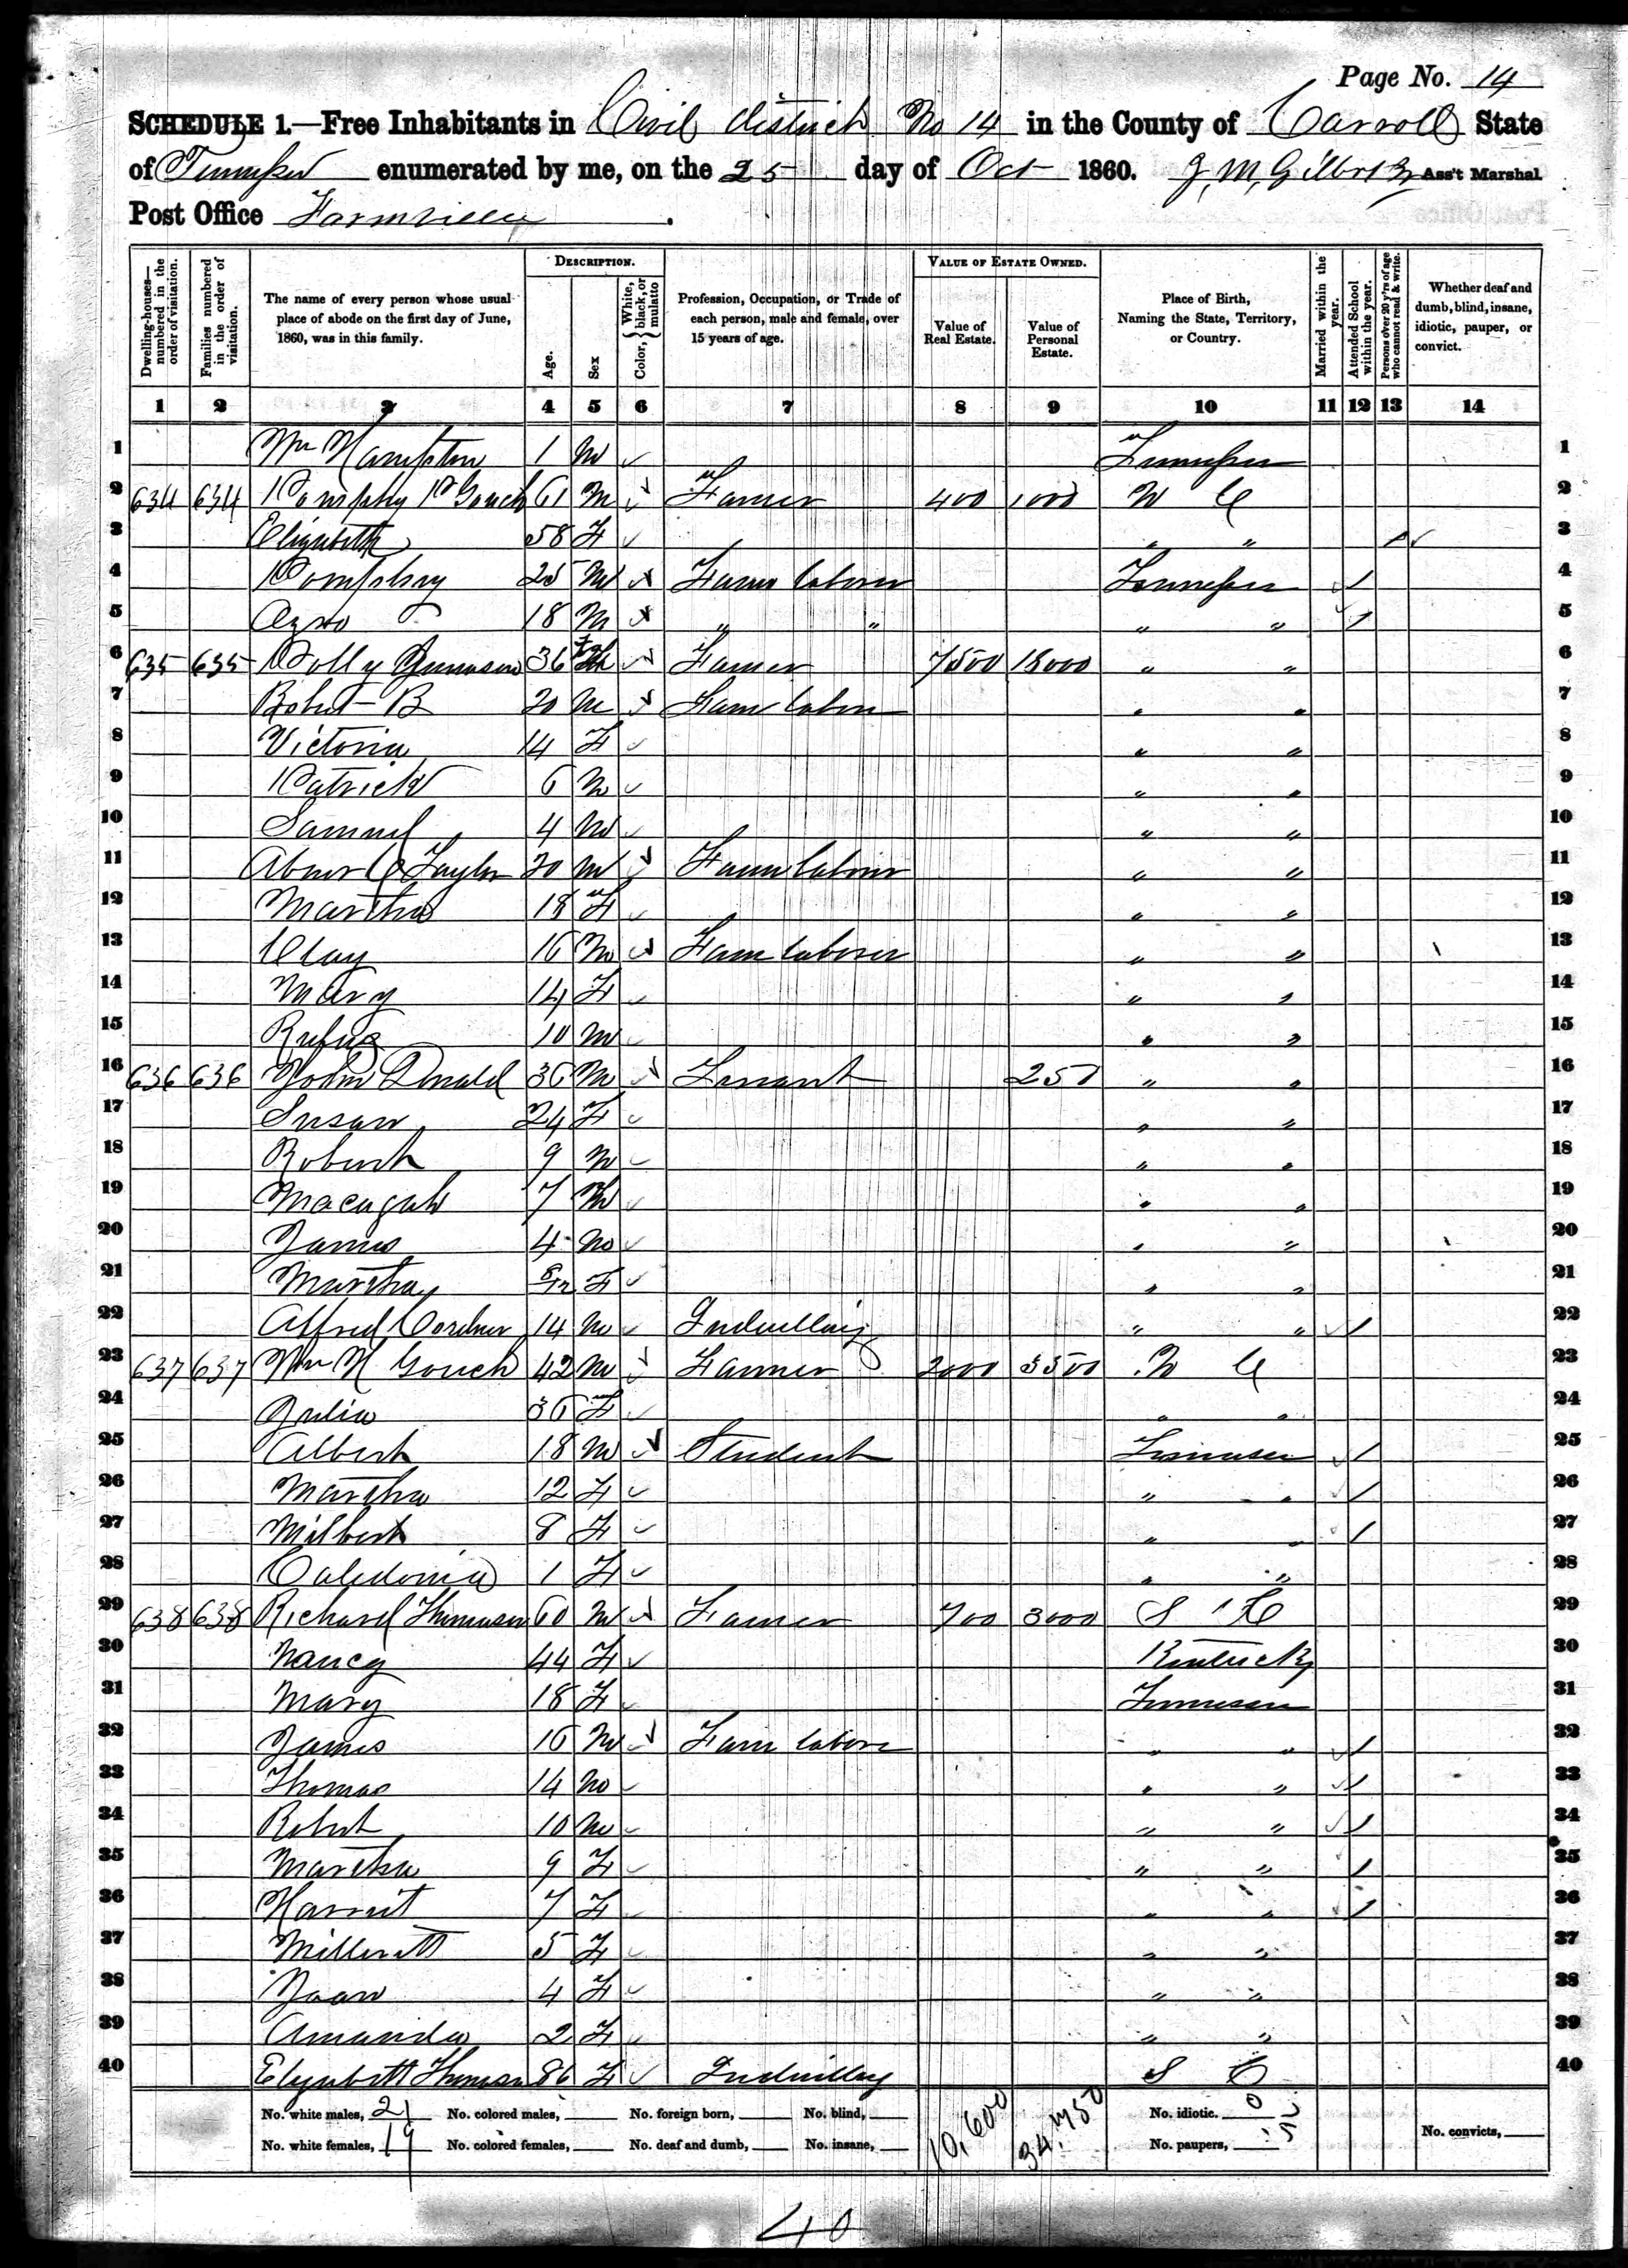 Page No. 14
SCHEDULE 1.—Free Inhabitants in Civil district No 14 in the County of Carroll State
of Tennessee enumerated by me, on the 25 day of Oct 1860. J. M. Gilbert Ass't Marshal
Post Office Farmville.
Dwelling-houses—numbered in the order of visitation.
Families numbered in the order of visitation.
The name of every person whose usual place of abode on the first day of June, 1860, was in this family.
DESCRIPTION.
Age.
Sex
Color, { White, black, or mulatto
Profession, Occupation, or Trade of each person, male and female, over 15 years of age.
VALUE OF ESTATE OWNED.
Value of Real Estate.
Value of Personal Estate.
Place of Birth, Naming the State, Territory, or Country.
Married within the year.
Attended School within the year.
Persons over 20 y'rs of age who cannot read & write.
Whether deaf and dumb, blind, insane, idiotic, pauper, or convict.
1 2 3 4 5 6 7 8 9 10 11 12 13 14
1 Wm Hampton 1 M Tennessee 1
2 634 634 Pomphry Gouch 61 M Farmer 400 1000 N C 2
3 Elizabeth 58 F " " / 3
4 Pomphrey 25 M Farm laborer Tennessee / 4
5 18 M " " " " / 5
6 635 635 Polly 36 F Farmer 7500 " " 6
7 Robert B 20 M Farm labor " " 7
8 Victoria 14 F " " 8
9 Patrick 6 M " " 9
10 Samuel 4 M " " 10
11 Abner C Taylor 20 M Farm laborer " " 11
12 Martha 18 F " " 12
13 Clay 16 M Farm laborer " " 13
14 Mary 14 F " " 14
15 Rufus 10 M " " 15
16 636 636 John Donald 36 M Tenant 250 " " 16
17 Susan 24 F " " 17
18 Robert 9 M " " 18
19 Macajah 7 M " " 19
20 James 4 M " " 20
21 Martha 8/12 F " " 21
22 Alfred 14 M Indwelling " " / 22
23 637 637 Wm H Gouch 42 M Farmer 2000 5500 N C 23
24 Julia 36 F " " 24
25 Albert 18 M Student Tennessee / 25
26 Martha 12 F " " / 26
27 Milbert 8 F " " / 27
28 Caledonia 1 F " " 28
29 638 638 Richard Thomason 60 M Farmer 700 3000 S C 29
30 Nancy 44 F Kentucky 30
31 Mary 18 F Tennessee 31
32 James 16 M Farm labor " " / 32
33 Thomas 14 M " " / 33
34 Robert 10 M " " / 34
35 Martha 9 F " " / 35
36 Harriet 7 F " " / 36
37 5 F " " 37
38 4 F " " 38
39 Amanda 2 F " " 39
40 Elizabeth Thomason 86 F Indwelling S C 40
No. white males, 21 No. colored males, No. foreign born, No. blind, 10,600 34,750 No. idiotic. 0
No. white females, 19 No. colored females, No. deaf and dumb, No. insane, No. paupers, No. convicts,
40